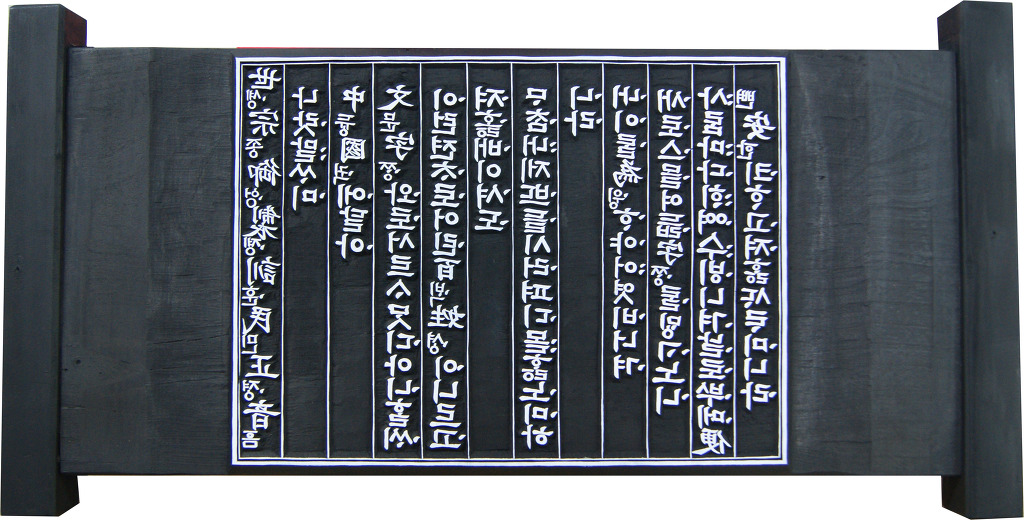 世솅宗종御엉製졩訓훈民민正졍音ᅙᅳᆷ
나랏말ᄊᆞ미
中듕國귁에달아
文문字ᄍᆞᆼ와로서르ᄉᆞᄆᆞᆺ디아니ᄒᆞᆯᄊᆡ
이런젼ᄎᆞ로어린百ᄇᆡᆨ姓셩이니르고
져홇배이셔도
ᄆᆞᄎᆞᆷ내제ᄠᅳ들시러펴디몯ᄒᆞᇙ노미하
니라
내이ᄅᆞᆯ爲윙ᄒᆞ야어엿비너겨
새로스믈여듧字ᄍᆞᆼᄅᆞᆯᄆᆡᇰᄀᆞ노니
사ᄅᆞᆷ마다ᄒᆡᅇᅧ수ᄫᅵ니겨날로ᄡᅮ메便
뼌安ᅙᅡᆫ킈ᄒᆞ고져ᄒᆞᇙᄯᆞᄅᆞ미니라